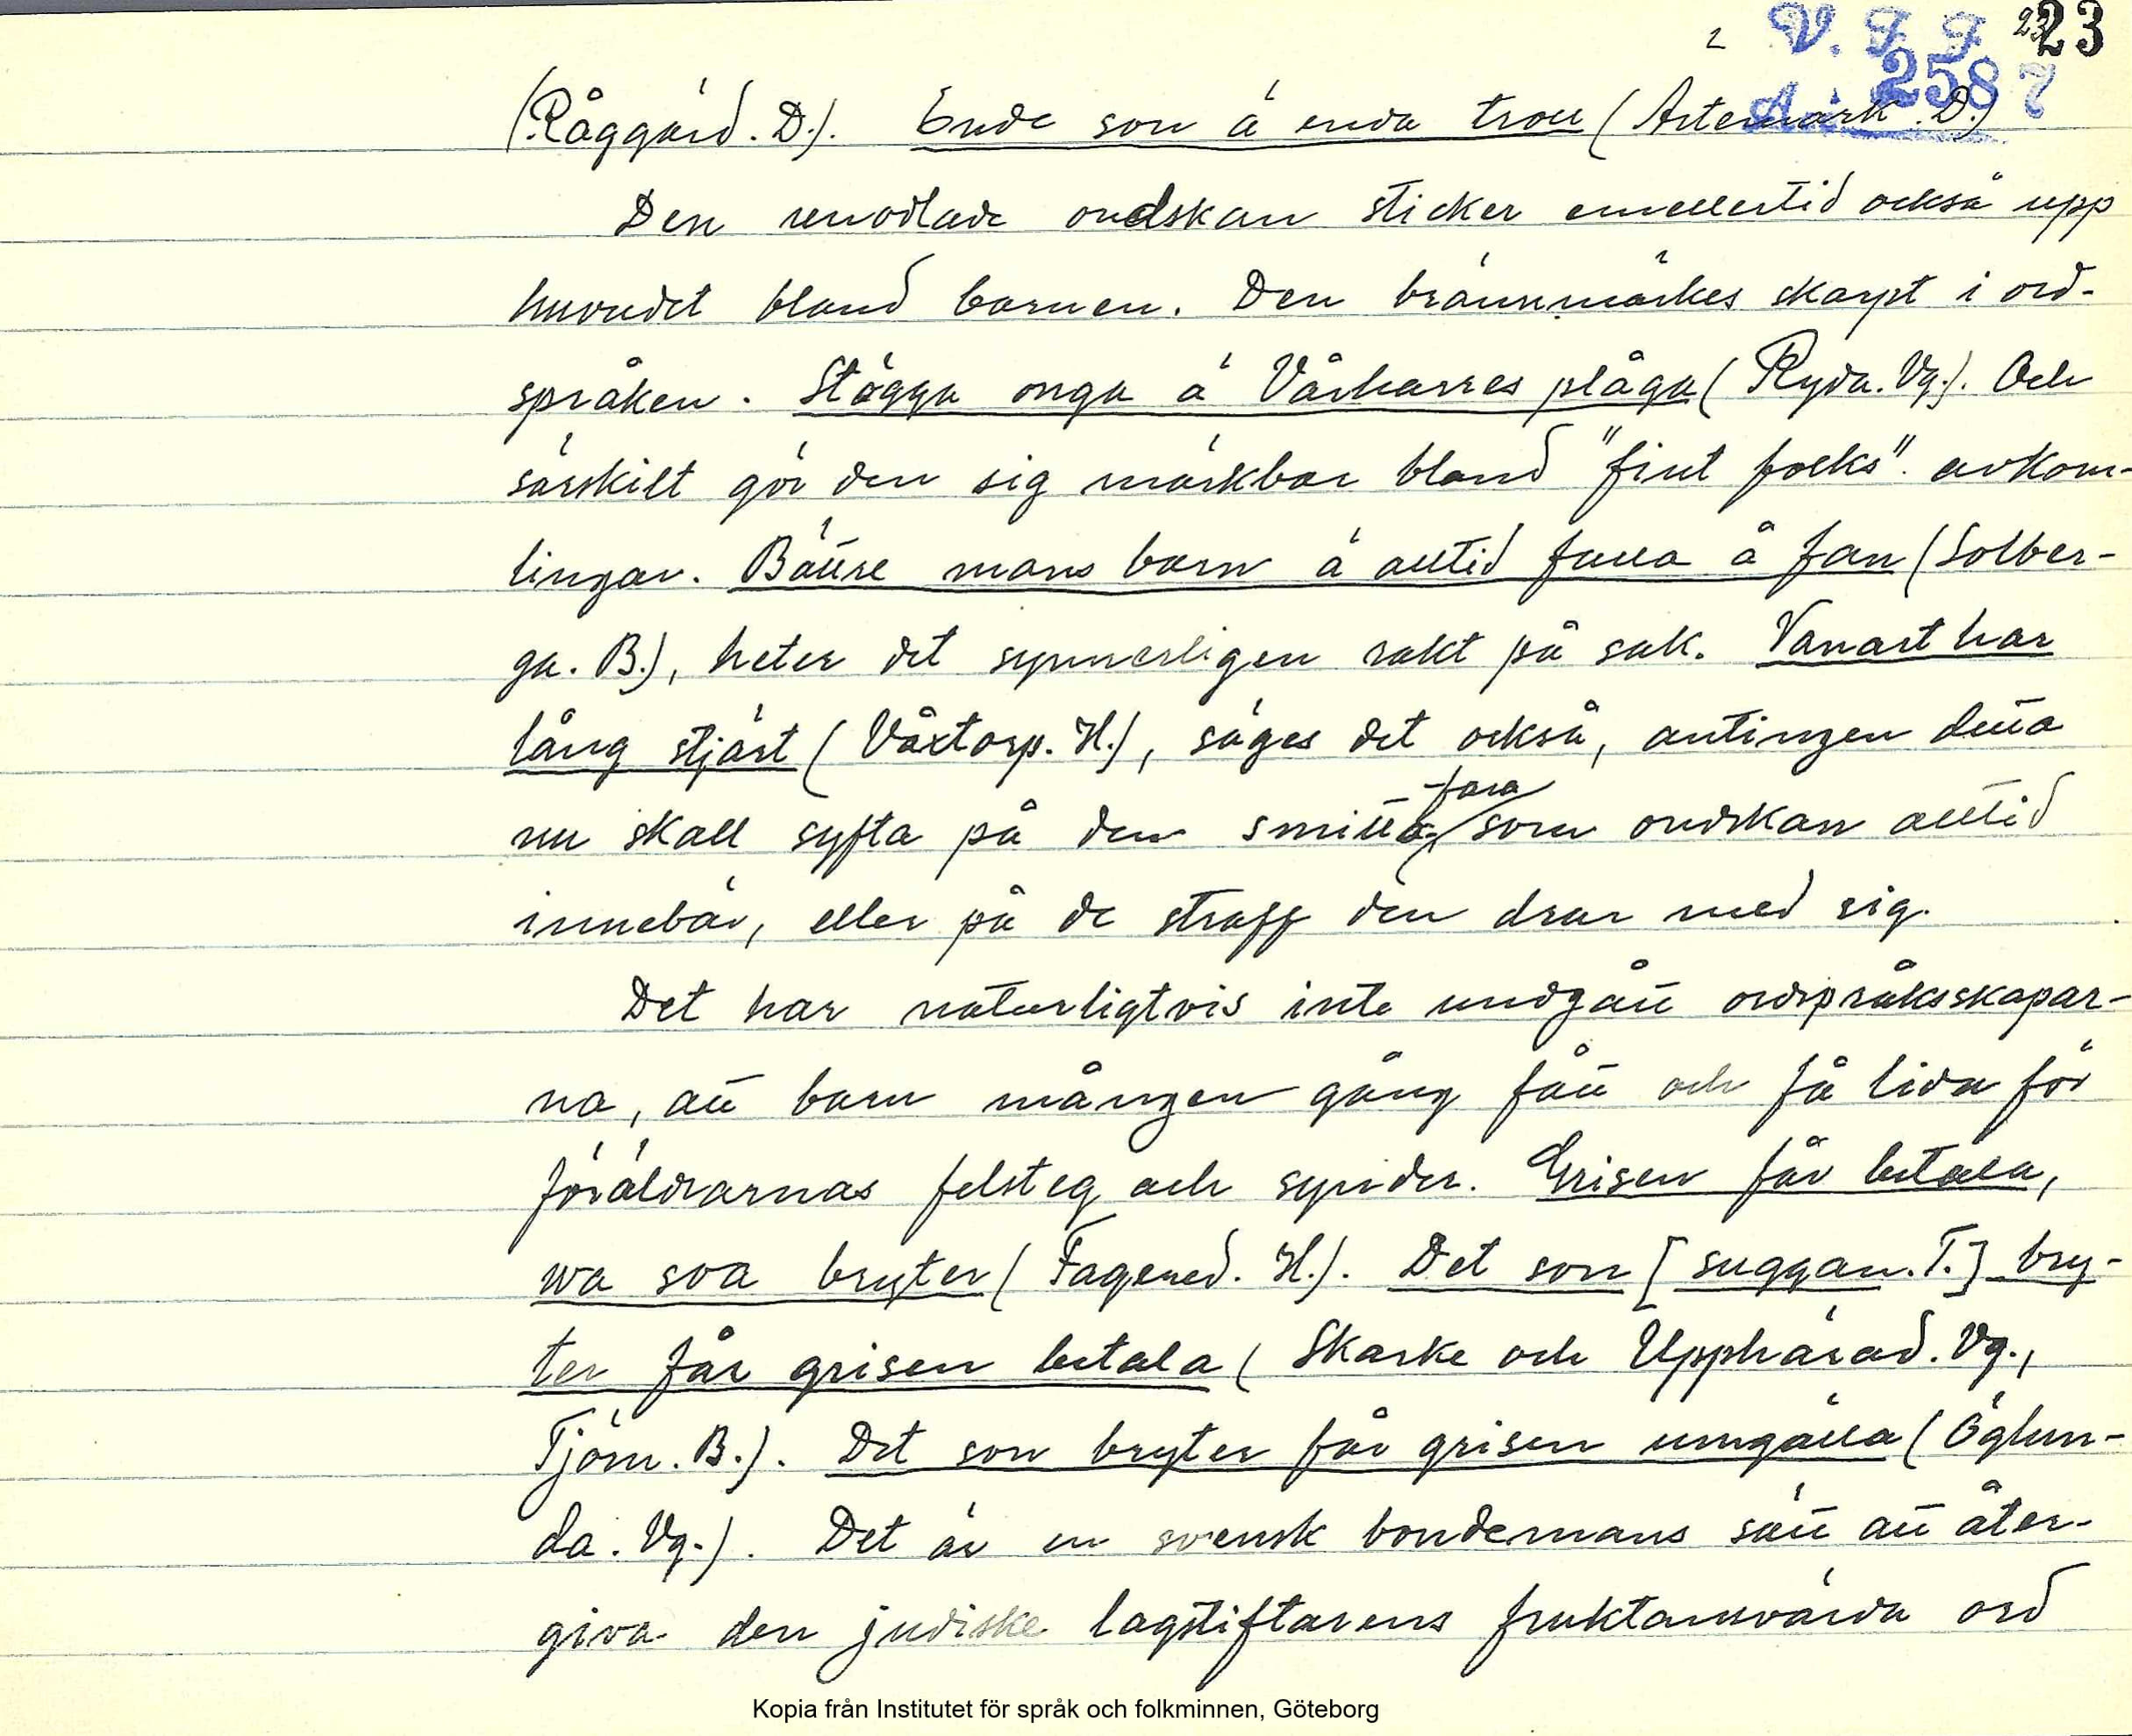 2 V. F. F. 23 23
A: 2587
(Råggärd. D.). Ende son ä enda troll (Artemark. D.)
Den renodlade ondskan sticker emellertid också upp
huvudet bland barnen. Den brännmärkes skarpt i ord-
språken. Stögga onga ä Vårharres plåga (Ryda. Vg.). Och
särskilt gör den sig märkbar bland "fint folks" avkom-
lingar. Bättre mans barn ä alltid fulla å fan (Solber-
ga. B.), heter det synnerligen rakt på sak. Vanart har
lång stjärt (Våxtorp. H.), säges det också, antingen detta
nu skall syfta på den smitta-fara som ondskan alltid
innebär, eller på de straff den drar med sig.
Det har naturligtvis inte undgått ordspråksskapar-
na, att barn mången gång fått och få lida för
föräldrarnas felsteg och synder. Grisen får betala,
va soa bryter (Fagered. H.). Det son [suggan. T.] bry-
ter får grisen betala (Skarke och Upphärad. Vg.,
Tjörn. B.). Det son bryter får grisen umgälla (Öglun-
da. Vg.). Det är en svensk bondemans sätt att åter-
giva den judiske lagstiftarens fruktansvärda ord
Kopia från Institutet för språk och folkminnen, Göteborg